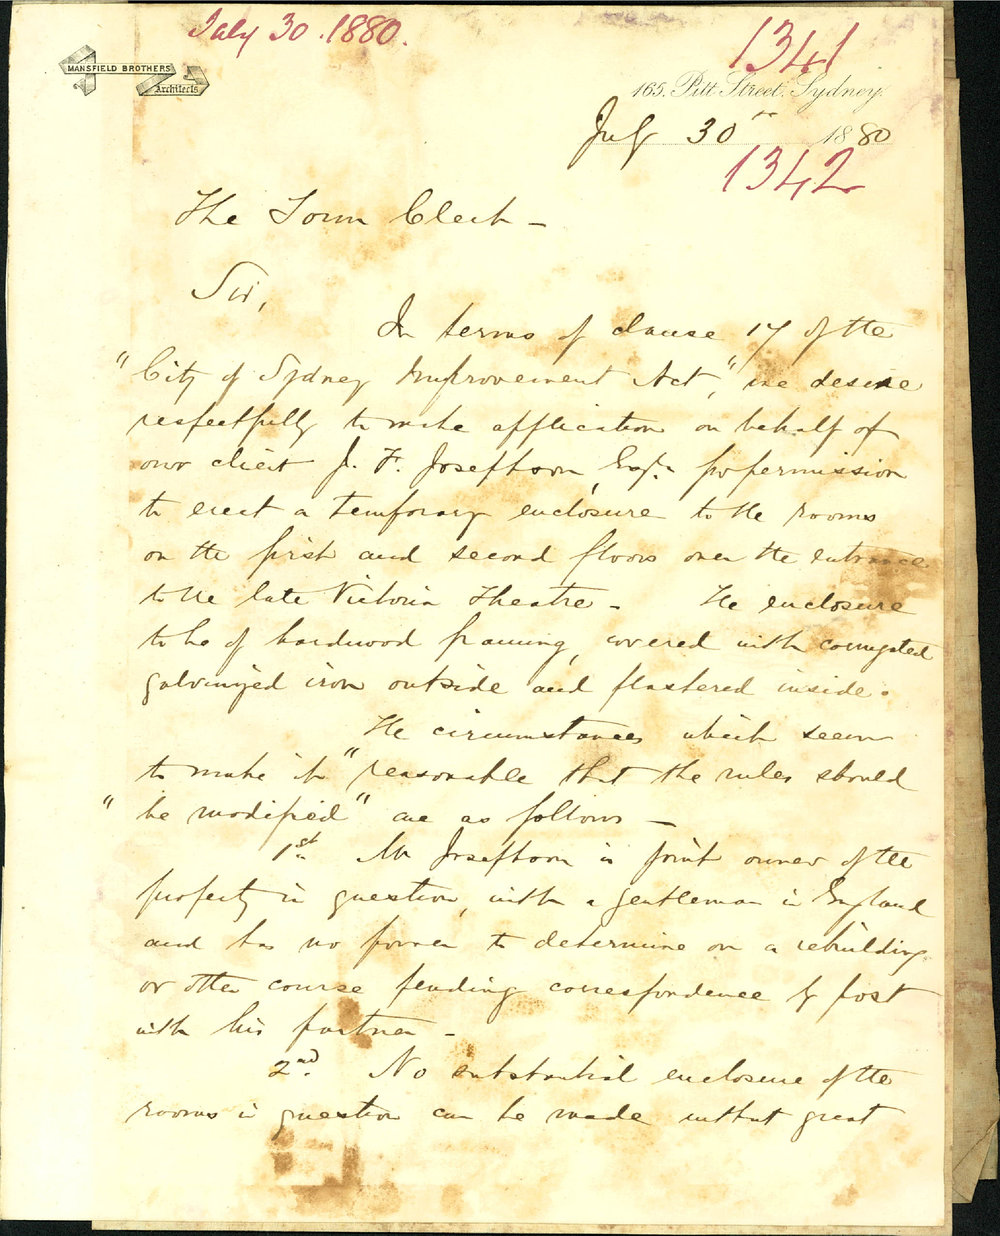 July 30. 1880.
1341
MANSFIELD BROTHERS
Architects
165, Pitt Street, Sydney.
July 30th 1880
1342
The Town Clerk -
Sir,
In terms of clause 17 of the
"City of Sydney Improvement Act," we desire
respectfully to make application on behalf of
our client J. F. Josephson, Esqre. for permission
to erect a temporary enclosure to the rooms
on the first and second floors over the entrance
to the late Victoria Theatre - The enclosure
to be of hardwood framing, covered with corrugated
galvinized iron outside and plastered inside.
The circumstances which seem
to make it "reasonable that the rules should
"be modified" are as follows -
1st. Mr Josephson is joint owner of the
property in question, with a gentleman in England
and has no power to determine on a rebuilding
or other course pending correspondence by post
with his partner -
2nd. No substantial enclosure of the
rooms in question can be made without great